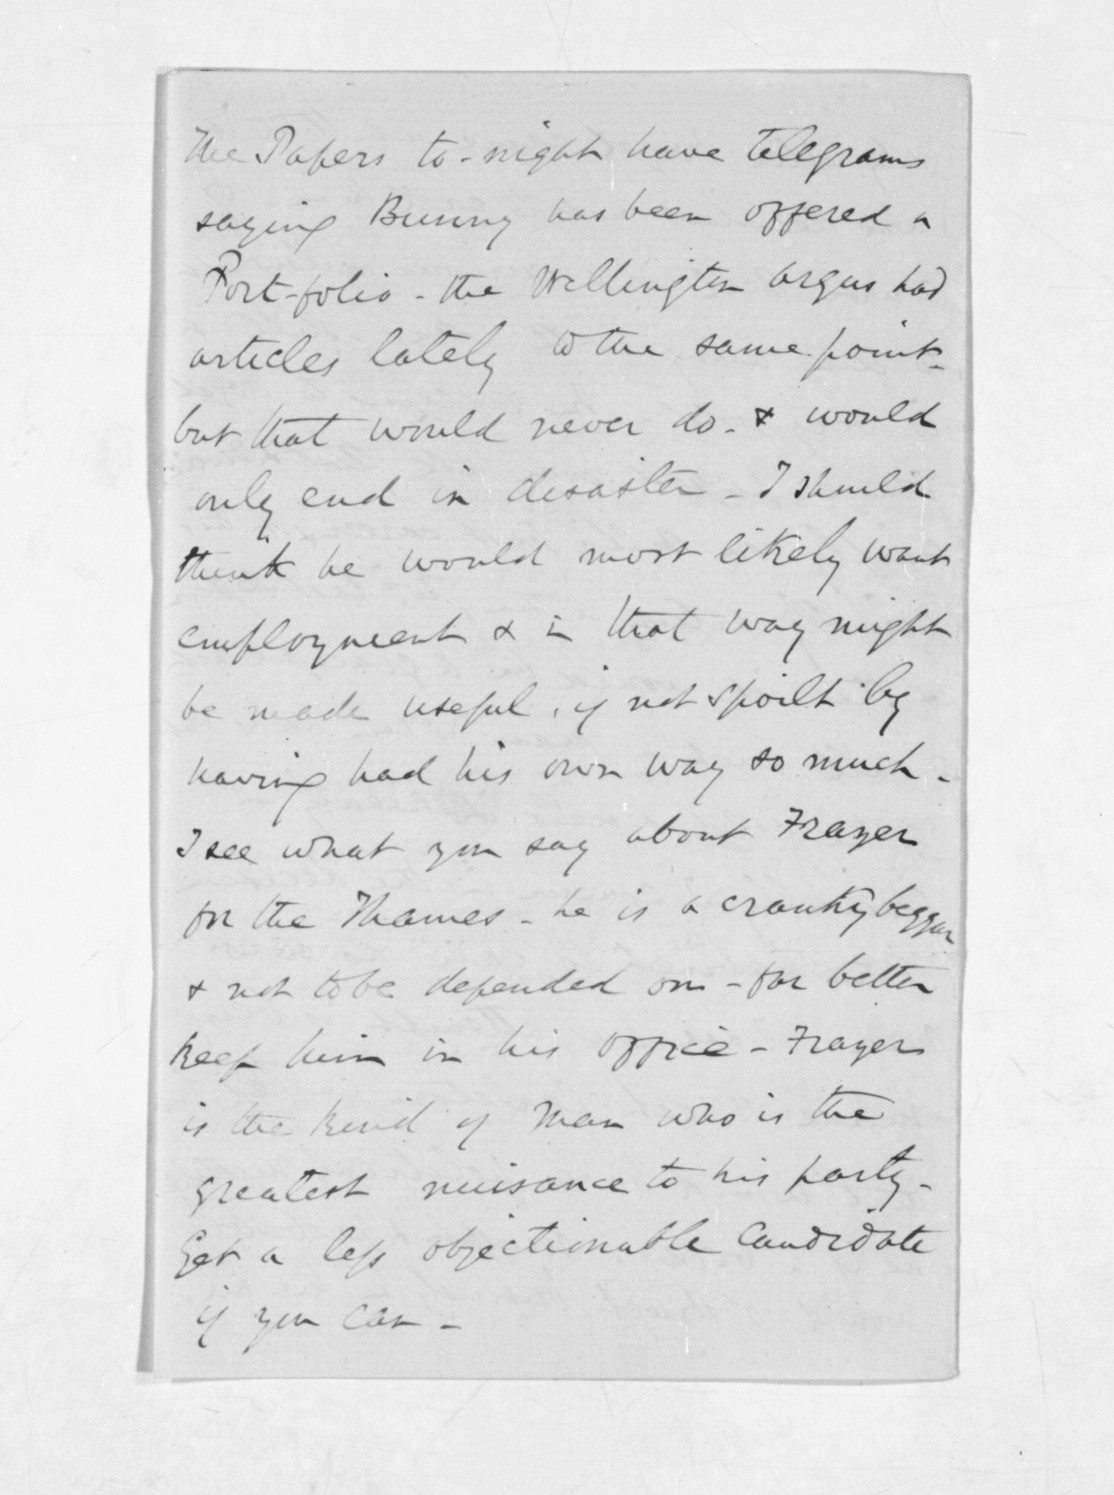 The Papers to-night have telegrams
saying Bunny has been offered a
Port-folio - the Wellington Argus had
articles lately to the same point -
but that would never do - & would
only end in disaster - I should
think he would most likely want
employment & in that way might
be made useful, if not spoilt by
having had his own way so much -
I see what you say about Frazer
for the Thames - he is a cranky beggar
& not to be depended on - far better
keep him in his office - Frazer
is the kind of man who is the
greatest nuisance to his party -
Get a less objectionable Candidate
if you can -